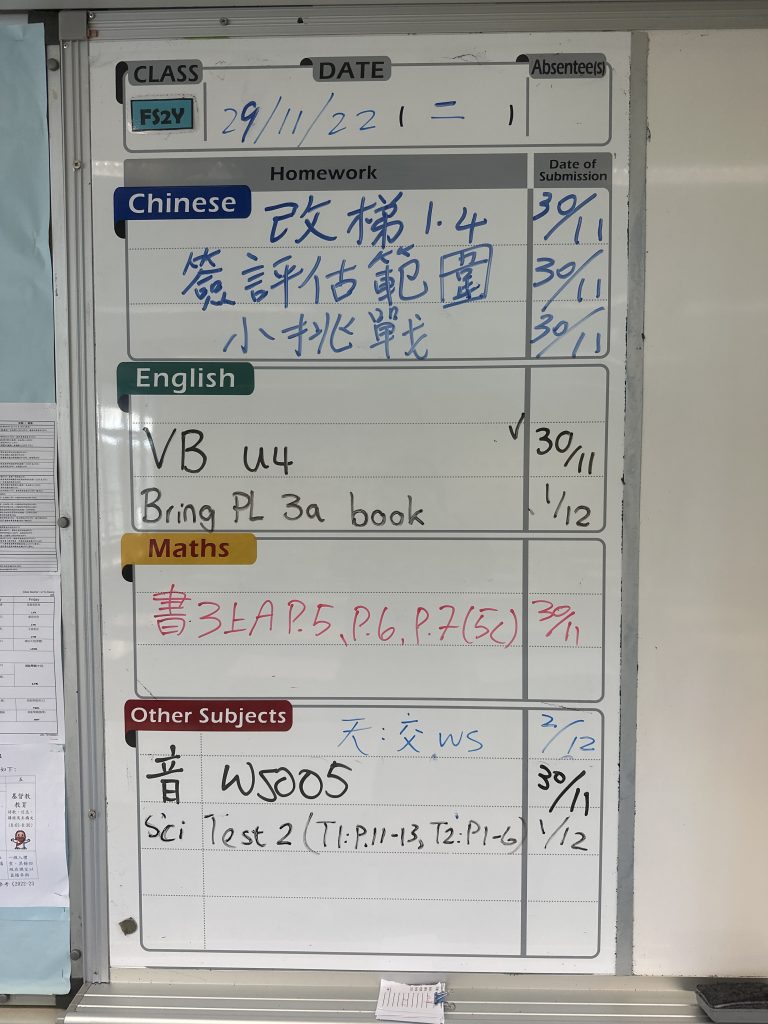 CLASS DATE Absentee(s)
FS2Y 29/11/22 ( 二 )
Homework Date of Submission
Chinese 改梯1.4 30/11
簽評估範圍 30/11
小挑戰 30/11
English
VB u4 ✓ 30/11
Bring PL 3a book 1/12
Maths
書3上A P.5、P.6、P.7(5c) 30/11
Other Subjects 天:交 ws 2/12
音 WS005 30/11
Sci Test 2 (T1:P.11-13, T2:P1-6) 1/12
Friday
如下:
五
基督教
教育